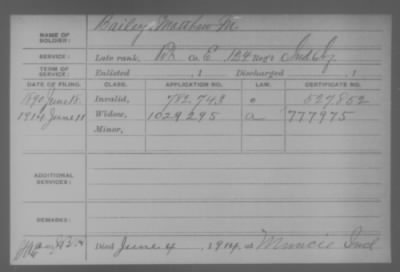 Bailey, Matthew M.
NAME OF SOLDIER:
SERVICE: Late rank, Pvt Co. E, 124 Reg't Ind Inf
TERM OF SERVICE: Enlisted , 1 Discharged , 1
DATE OF FILING. CLASS. APPLICATION NO. LAW. CERTIFICATE NO.
1890 June 18. Invalid, 782,743 527852
1914 June 11 Widow, 1029295 a 777975
Minor,
ADDITIONAL SERVICES:
REMARKS:
Died June 4, 1914, at Muncie Ind